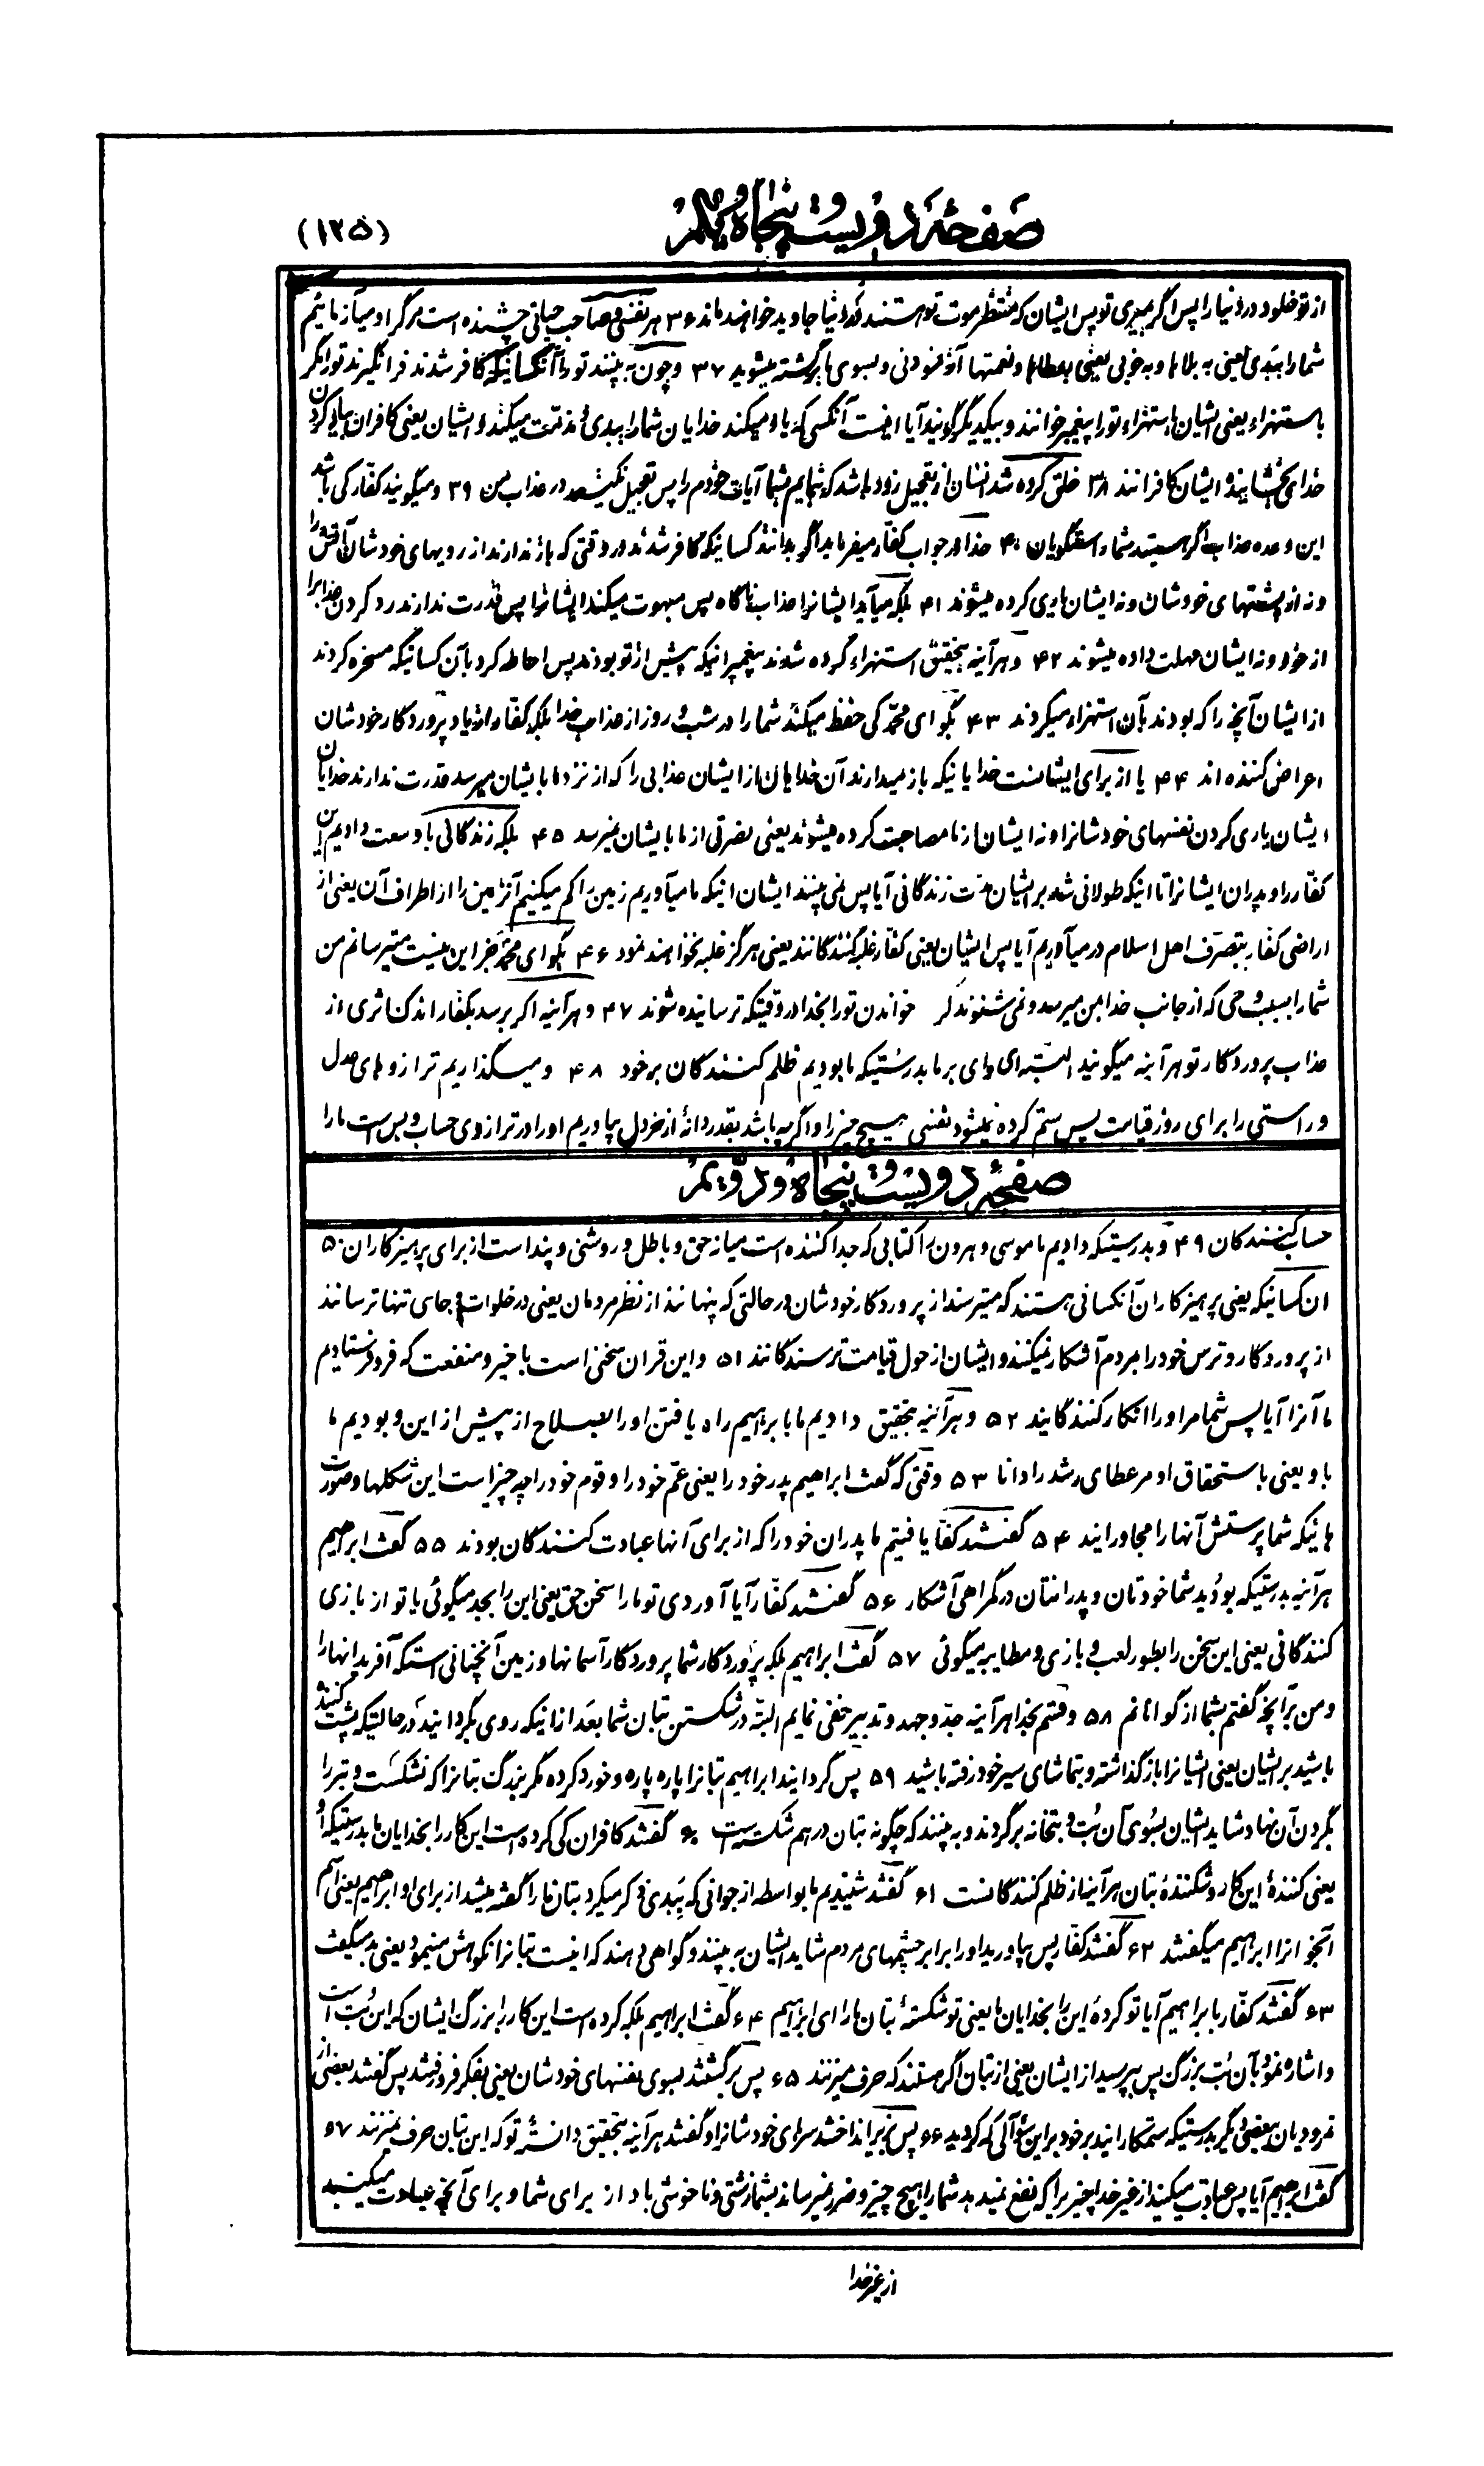 صفحهٔ دویست و پنجاه و یکم
(۱۲۵)
از تو خلود در دنیا را پس اگر بمیری تو پس ایشان که منتظر موت تو هستند در دنیا جاوید خواهند ماند ۳۶ هر نفسی و صاحب حیاتی چشنده است مرگ را و میآزمائیم
شما را ببدی یعنی به بلاها و به خوبی یعنی بعطاها و نعمتها آزمودنی و بسوی ما برگشته میشوید ۳۷ و چون به بینند تو را آنکسانیکه کافر شدند فرا نگیرند تو را مگر
باستهزاء یعنی ایشان باستهزاء تو را پیغمبر خوانند و بیکدیگر گویند آیا اینست آنکسی که یاد میکند خدایان شما را ببدی و مذمت میکند و ایشان یعنی کافران بیاد کردن
خدای بخشاینده ایشان کافرانند ۳۸ خلق کرده شد انسان از تعجیل زود باشد که بنمایم بشما آیات خودم را پس تعجیل نکنید در عذاب من ۳۹ و میگویند کفار کی باشد
این وعده عذاب اگر هستید شما راستگویان ۴۰ خدا در جواب کفار میفرماید اگر بدانند کسانیکه کافر شدند در وقتی که باز ندارند از رویهای خودشان آتش را
و نه از پشتهای خودشان و نه ایشان یاری کرده میشوند ۴۱ بلکه میآید ایشانرا عذاب ناگاه پس مبهوت میکند ایشانرا پس قدرت ندارند رد کردن عذابرا
از خود و نه ایشان مهلت داده میشوند ۴۲ و هر آینه بتحقیق استهزاء کرده شدند پیغمبرانیکه پیش از تو بودند پس احاطه کرد بآن کسانیکه مسخره کردند
از ایشان آنچه را که بودند بآن استهزاء میکردند ۴۳ بگو ای محمد کی حفظ میکند شما را در شب و روز از عذاب خدا بلکه کفار از یاد پروردگار خودشان
اعراض کننده اند ۴۴ یا از برای ایشانست خدایانیکه باز میدارند آن خدایان از ایشان عذابی را که از نزد ما بایشان میرسد قدرت ندارند خدایان
ایشان یاری کردن نفسهای خودشانرا و نه ایشان از ما مصاحبت کرده میشوند یعنی نصرتی از ما بایشان نمیرسد ۴۵ بلکه زندگانی با وسعت دادیم این
کفار را و پدران ایشانرا تا اینکه طولانی شد بر ایشان مدت زندگانی آیا پس نمی بینند ایشان اینکه ما میآوریم زمین را کم میکنیم آنزمین را از اطراف آن یعنی از
اراضی کفار بتصرف اهل اسلام در میآوریم آیا پس ایشان یعنی کفار غلبه کنندگانند یعنی هرگز غلبه نخواهند نمود ۴۶ بگو ای محمد جز این نیست میترسانم من
شما را بسبب وحی که از جانب خدا بمن میرسد و نمی شنوند کر خواندن تو را بخدا در وقتیکه ترسانیده شوند ۴۷ و هر آینه اگر برسد بکفار اندک اثری از
عذاب پروردگار تو هر آینه میگویند البته ای وای بر ما بدرستیکه ما بودیم ظلم کنندگان بر خود ۴۸ و میگذاریم ترازوهای عدل
و راستی را برای روز قیامت پس ستم کرده نمیشود نفسی هیچ چیز را و اگر چه باشد بقدر دانهٔ از خردل بیاوریم او را در ترازوی حساب و بس است ما را
صفحهٔ دویست و پنجاه و دویم
حساب کنندکان ۴۹ و بدرستیکه دادیم ما موسی و هرون را کتابی که جدا کننده است میانه حق و باطل و روشنی و پند است از برای پرهیزکاران ۵۰
آن کسانیکه یعنی پرهیزکاران آنکسانی هستند که میترسند از پروردکار خودشان در حالتی که پنهانند از نظر مردمان یعنی در خلوات و جای تنها ترسانند
از پروردکار و ترس خود را بمردم آشکار نمیکنند و ایشان از حول قیامت ترسندگانند ۵۱ و این قران سخنی است با خیر و منفعت که فرو فرستادیم
ما آنرا آیا پس شما مر او را انکار کنندگانید ۵۲ و هر آینه بتحقیق دادیم ما بابراهیم راه یافتن او را بصلاح از پیش از این و بودیم ما
باو یعنی باستحقاق او مر عطای رشد را دانا ۵۳ وقتی که گفت ابراهیم پدر خود را یعنی عم خود را و قوم خود را چه چیز است این شکلها و صورت
هائیکه شما پرستش آنها را مجاورانید ۵۴ گفتند کفار یافتیم ما پدران خود را که از برای آنها عبادت کنندگان بودند ۵۵ گفت ابراهیم
هر آینه بدرستیکه بودید شما خودتان و پدرانتان در گمراهی آشکار ۵۶ گفتند کفار آیا آوردی تو ما را سخن حق یعنی این را بجد میگوئی یا تو از بازی
کنندگانی یعنی این سخن را بطور لعب و بازی و مطایبه میگوئی ۵۷ گفت ابراهیم بلکه پروردگار شما پروردگار آسمانها و زمین آنچنانی استکه آفرید انها را
و من بر آنچه گفتم بشما از گواهانم ۵۸ و قسم بخدا هر آینه جد و جهد و تدبیر خفی نمایم البته در شکستن بتان شما بعد از انیکه روی بگردانید در حالتیکه پشت کننده
باشید بر ایشان یعنی ایشانرا باز گذاشته و بتماشای سیر خود رفته باشید ۵۹ پس گردانید ابراهیم بتانرا پاره پاره و خورد کرده مگر بزرگ بتانرا که نشکست و تبر را
بگردن آن نهاد شاید ایشان بسوی آن بت و بتخانه برگردند و به بینند که چگونه بتان در هم شکسته است ۶۰ گفتند کافران کی کرده است این کار را بخدایان ما بدرستیکه او
یعنی کنندهٔ این کار و شکنندهٔ بتان هر آینه از ظلم کنندگانست ۶۱ گفتند شنیدیم ما بواسطه از جوانی که ببدی ذکر میکرد بتان ما را گفته میشد از برای او ابراهیم یعنی اسم
آنجوانرا ابراهیم میگفتند ۶۲ گفتند کفار پس بیاورید او را برابر چشمهای مردم شاید ایشان به بینند و گواهی دهند که اینست بتانرا نکوهش مینمود یعنی بد میگفت
۶۳ گفتند کفار بابراهیم آیا تو کردهٔ این را بخدایان ما یعنی تو شکستهٔ بتان ما را ای ابراهیم ۶۴ گفت ابراهیم بلکه کرده است این کار را بزرگ ایشان که این بت است
و اشاره نمود بآن بت بزرگ پس بپرسید از ایشان یعنی از بتان اگر هستند که حرف میزنند ۶۵ پس برگشتند بسوی نفسهای خودشان یعنی بفکر فرو رفتند پس گفتند بعضی از
نمرودیان ببعضی دیگر بدرستیکه ستمکارانید بر خود بر این سؤالی که کردید ۶۶ پس بزیر انداختند سرهای خودشانرا و گفتند هر آینه بتحقیق دانستهٔ تو که این بتان حرف نمیزنند ۶۷
گفت ابراهیم آیا پس عبادت میکنید از غیر خدا چیز یرا که نفع نمیدهد شما را هیچ چیز و ضرر نمیرساند بشما زشتی و ناخوشی باد از برای شما و برای آنچه عبادت میکنید
از غیر خدا